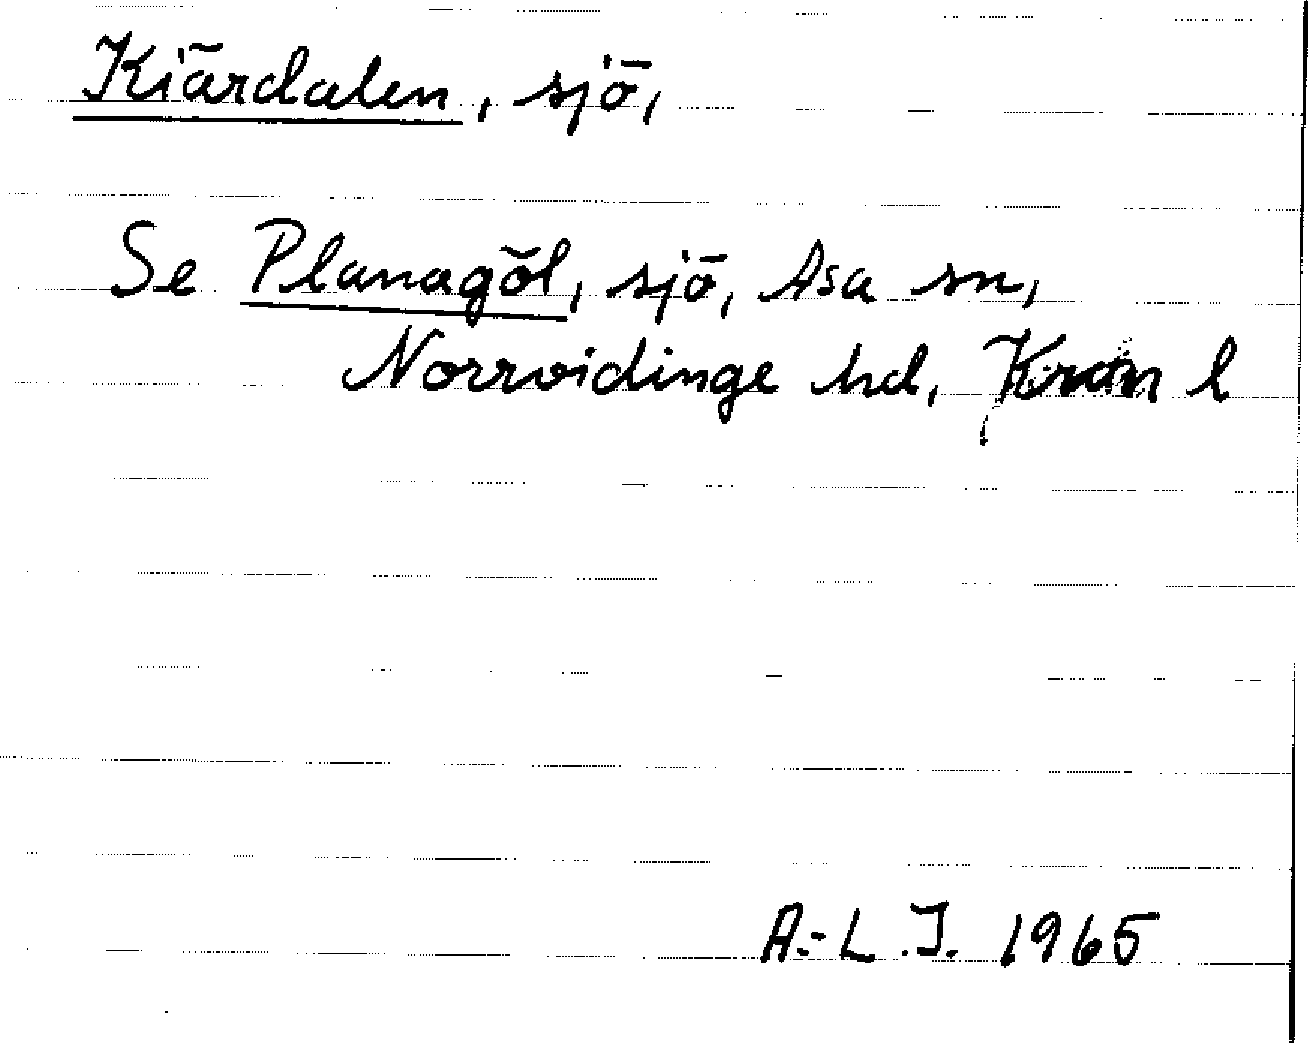 Kiärdalen, sjö,
Se Planagöl, sjö, Asa sn,
Norrvidinge hd, Kron l
A.-L. J. 1965